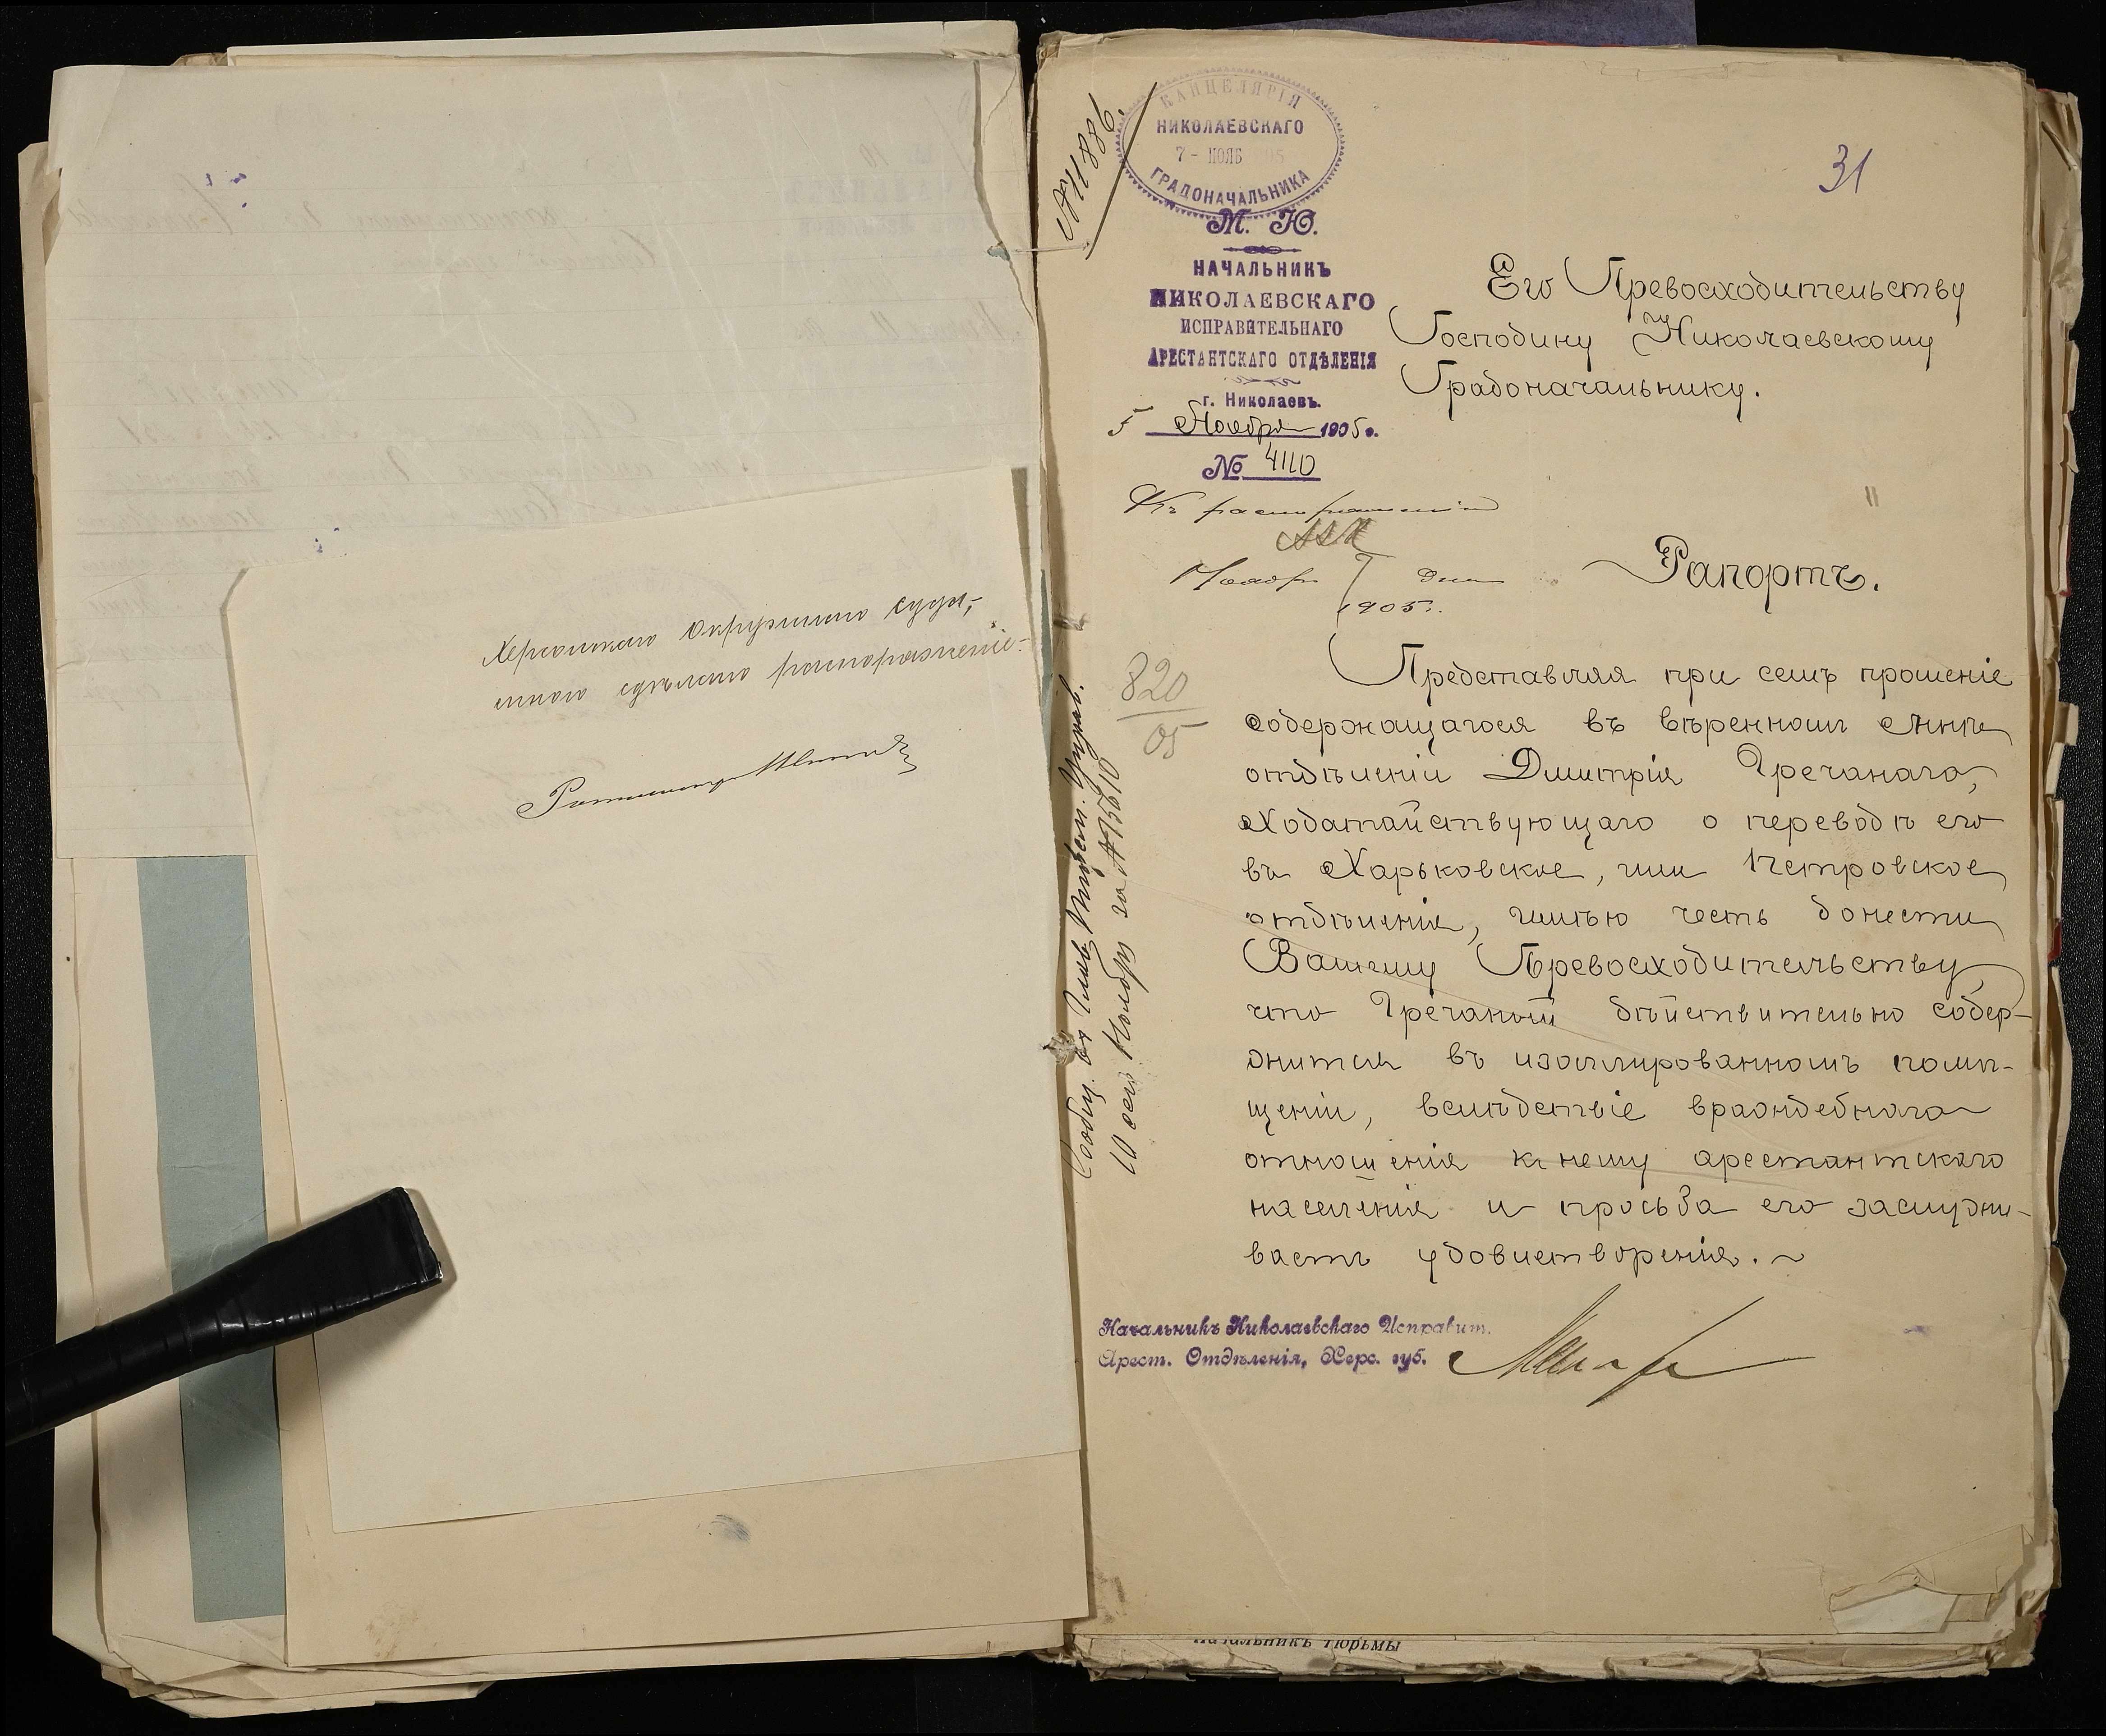 Херсонскаго Окружнаго суда,
сдѣлано распоряженіе.
№ 11886.
КАНЦЕЛЯРІЯ
НИКОЛАЕВСКАГО
7 - НОЯБ 05
ГРАДОНАЧАЛЬНИКА
31
М. Ю.
НАЧАЛЬНИКЪ
НИКОЛАЕВСКАГО
ИСПРАВИТЕЛЬНАГО
АРЕСТАНТСКАГО ОТДѢЛЕНІЯ
г. Николаевъ.
5 Ноября 1905 г.
№ 4110
Его Превосходительству
Господину Николаевскому
Градоначальнику.
Къ распоряженію
Ноября 7 дня
1905 г.
Рапортъ.
820
05
Представляя при семъ прошеніе
содержащагося въ ввѣренномъ мнѣ
отдѣленіи Дмитрія Гречанаго,
ходатайствующаго о переводѣ его
въ Харьковское, или Петровское
отдѣленія, имѣю честь донести
Вашему Превосходительству,
что Гречаный дѣйствительно содер-
жится въ изоллированномъ помѣ-
щеніи, вслѣдствіе враждебнаго
отношенія къ нему арестантскаго
населенія и просьба его заслужи-
ваетъ удовлетворенія.
Сообщ. въ Главн. Тюремн. Управл.
10 сего Ноября за № 15610
Начальникъ Николаевскаго Исправит.
Арест. Отдѣленія, Херс. губ.
Начальникъ тюрьмы